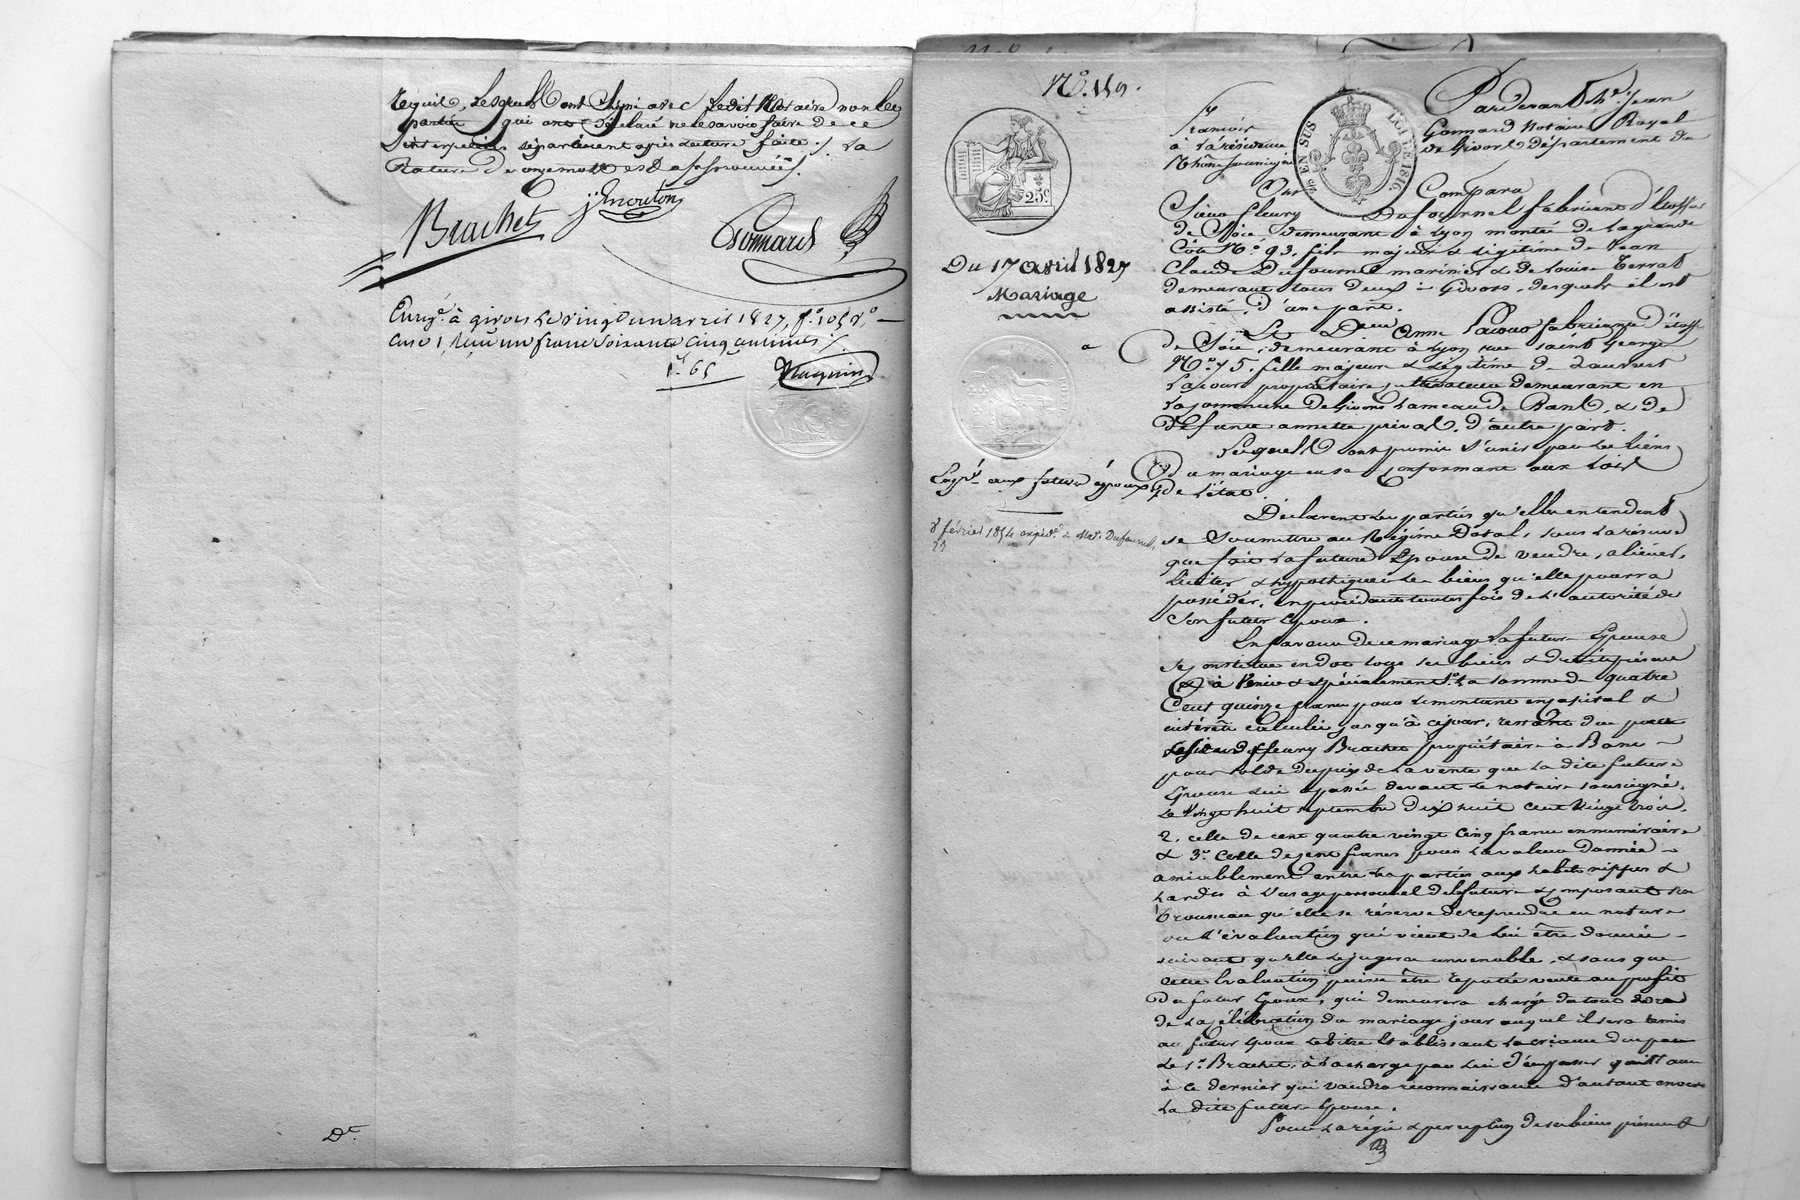 requis, lesquels ont signé avec ledit Notaire non les
parties qui ont déclaré ne le savoir faire de ce
interpellées séparément après lecture faite. La
Rature de onze mots est approuvée.
Brachet jh mouton Gonnard
Enreg.é à givors le vingt un avril 1827, f.o 105 v.o
case 1, reçu un franc soixante cinq centimes
1.f 65
De.
N.o 159.
25c.
Du 17 avril 1827
Mariage
Exp.é aux futurs époux
8 février 1854 expéd.é à Mad.e Dufournel
23
26 EN SUS
LOI DE 1816.
Pardevant M.e Jean
François Gonnard Notaire Royal
à la résidence de Givors département du
Rhône soussigné
Compara
Sieur fleury Dufournel fabricant d'étoffes
de Soie demeurant à Lyon montée de la grande
Côte N.o 93, fils majeur & légitime de Jean
Claude Dufournel marinier & de Louise Terrat
demeurant tous deux à Givors, desquels il est
assisté, d'une part.
Et D.elle Anne fabricante d'étoffe
de Soie, demeurant à Lyon rue saint George
N.o 75, fille majeure & légitime de Laurent
propriétaire demeurant en
la commune de Givors hameau de Bans, & de
défunte annette prival, d'autre part.
Lesquels ont promis s'unir par les liens
du mariage en se conformant aux lois
de l'état.
Déclarent les parties qu'elles entendent
se soumettre au Régime Dotal, sous la réserve
que fait la future Epouse de vendre, aliéner,
liciter & hypothéquer les biens qu'elle pourra
posséder, en procédant toutes fois de l'autorité de
Son futur Epoux.
En faveur de ce mariage la future Epouse
se constitue en dot tous ses biens & droits présens
& à venir & spécialement 1.o la somme de quatre
Cent quinze francs pour le montant en capital &
intérêts calculés jusqu'à ce jour, restant due par
le sieur fleury Brachet propriétaire à Bans
pour solde du prix de la vente que la dite future
Epouse lui a passée devant le notaire soussigné,
Le vingt huit septembre dix huit cent vingt trois,
2.o celle de cent quatre vingt cinq francs en numéraire
& 3.o celle de cent francs pour la valeur donnée
amiablement entre les parties aux habits nippes &
hardes à l'usage personnel de la future & composant son
trousseau qu'elle se réserve de reprendre en nature
ou l'évaluation qui vient de lui être donnée
suivant qu'elle le jugera convenable, & sans que
cette évaluation puisse être réputée vente au profit
du futur Epoux, qui demeurera chargé du tout lors
de la célébration du mariage jour auquel il sera remis
au futur Epoux le titre établissant la créance due par
le s.r Brachet, à la charge par lui d'en passer quittance
à ce dernier qui vaudra reconnaissance d'autant envers
la dite future Epouse.
Pour la régie & perception de ses biens présents